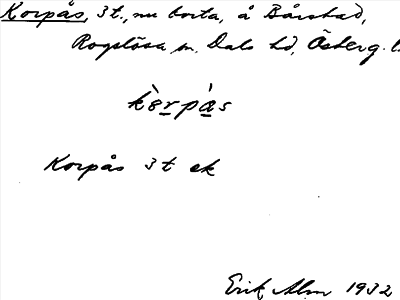 Korpås, 3 t., nu borta, å Bårstad,
Rogslösa sn. Dals hd, Österg. l.
kòrpås
Korpås 3 t ek
Erik Alm 1932